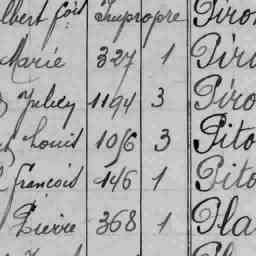 lbert fois Impropre Piro
Marie 327 1 Piro
1194 3 Piro
Louis 1056 3 Pito
francois 146 1 Pito
Pierre 368 1 Pla